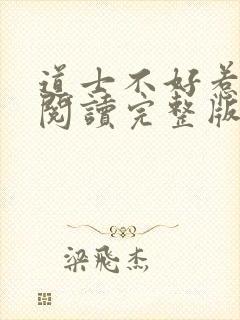 道士不好惹
閱讀完整版
梁飛杰